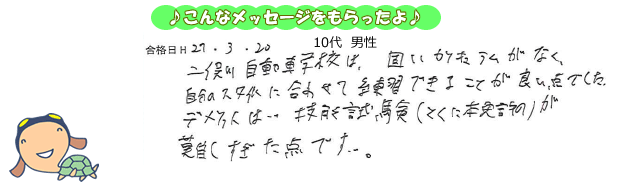 ♪こんなメッセージをもらったよ♪
合格日H 27・3・20 10代 男性
二俣川自動車学校は、固いカリキュラムがなく、
自分のスタイルに合わせて練習できることが良い点でした。
デメリットは… 技能試験(とくに本免試験)が
難しすぎた点です…。